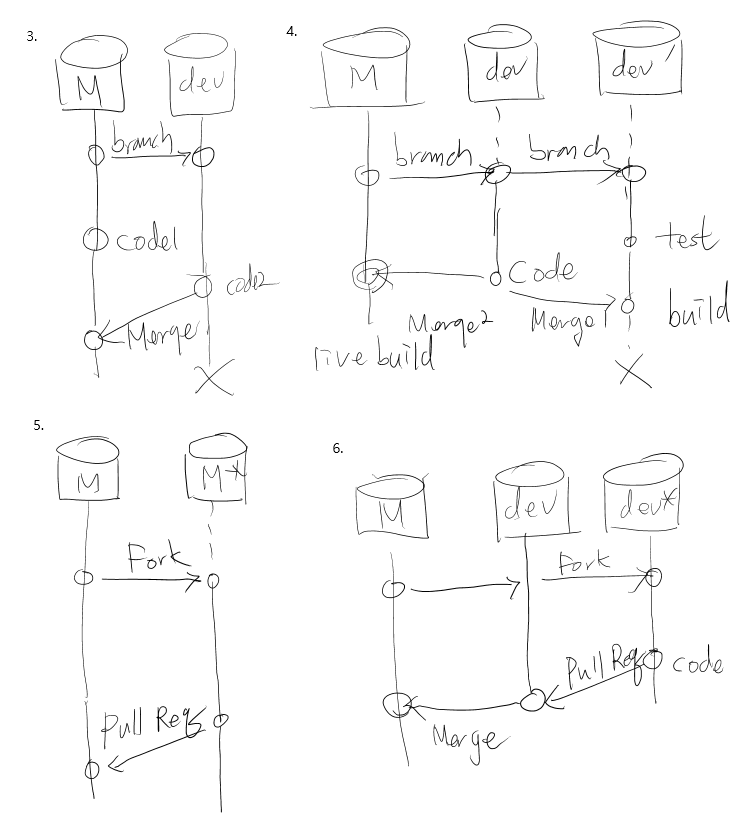 3.
M
dev
branch
code1
code2
Merge
4.
M
dev
dev'
branch
branch
test
Code
build
Merge2
Merge1
live build
5.
M
M*
Fork
Pull Req
6.
M
dev
dev*
Fork
Pull Req
code
Merge